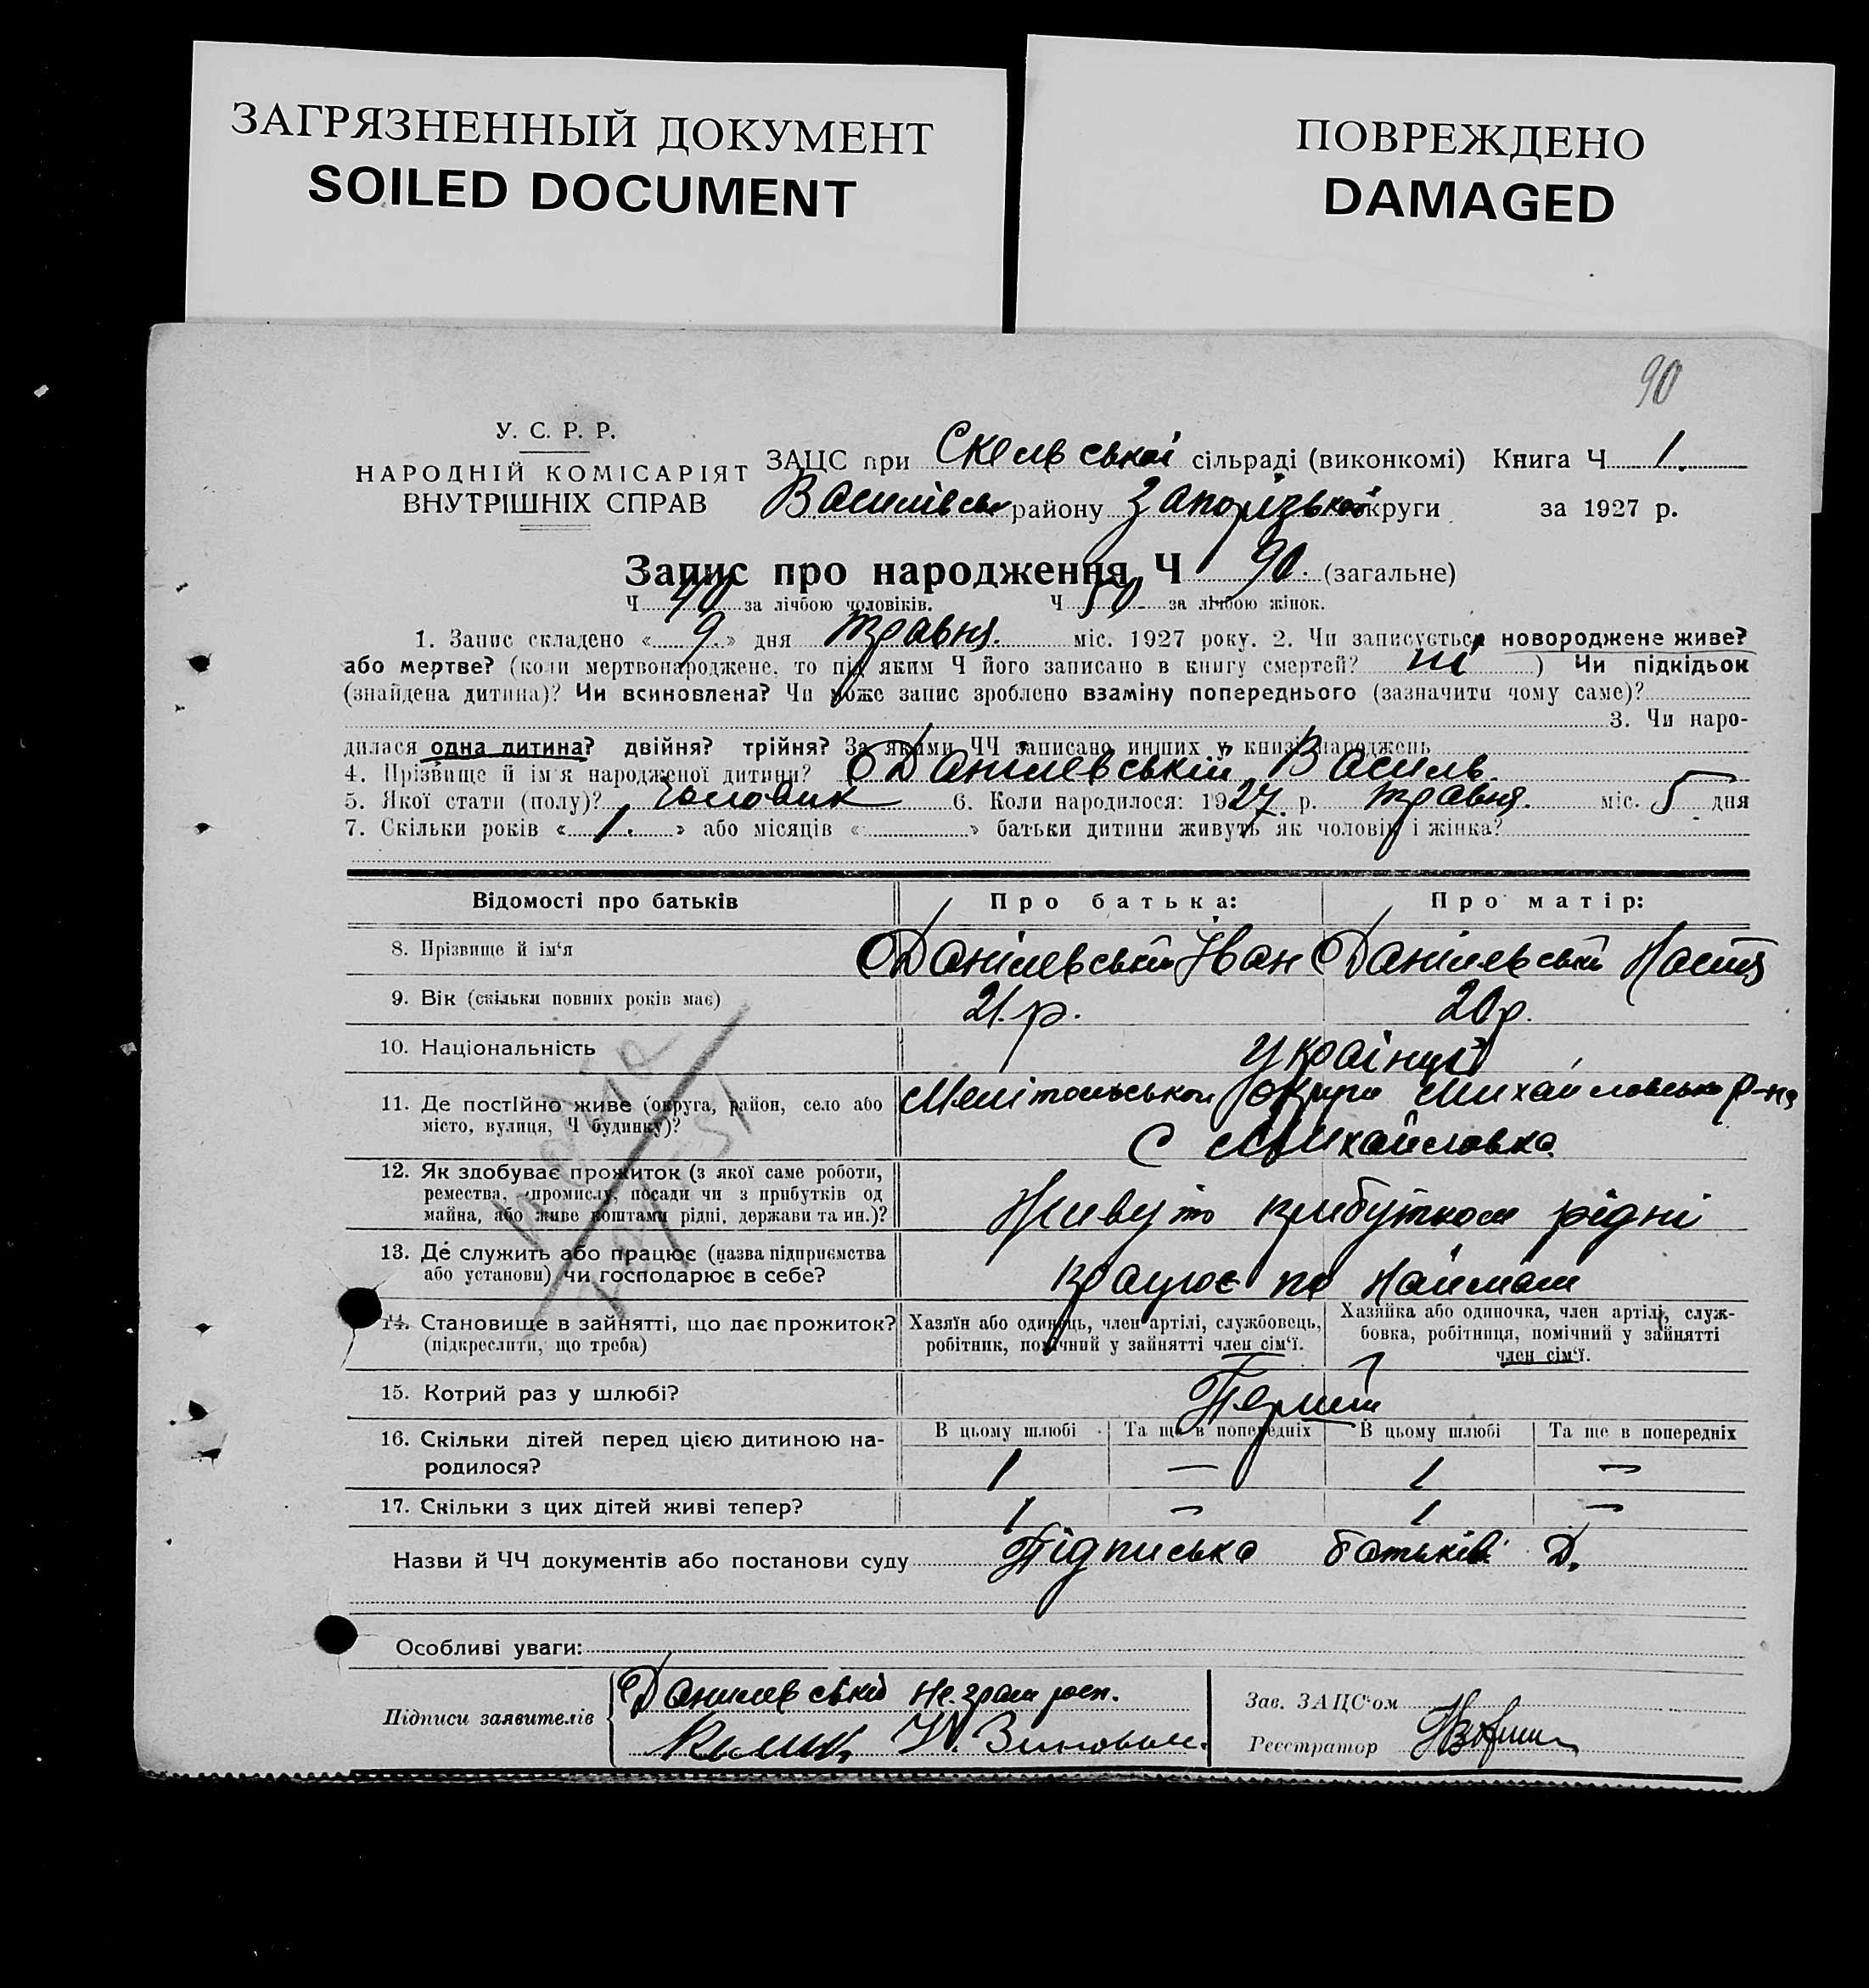 ЗАГРЯЗНЕННЫЙ ДОКУМЕНТ
SOILED DOCUMENT
ПОВРЕЖДЕНО
DAMAGED
90
У. С. Р. Р.
НАРОДНІЙ КОМІСАРІЯТ
ВНУТРІШНІХ СПРАВ
ЗАЦС при Скельської сільраді (виконкомі) Книга Ч 1.
Василівськ району Запорізької округи за 1927 р.
Запис про народження Ч 90. (загальне)
Ч 40 за лічбою чоловіків. Ч 50 за лічбою жінок.
1. Запис складено « 9. » дня травня. міс. 1927 року. 2. Чи записується новороджене живе?
або мертве? (коли мертвонароджене, то під яким Ч його записано в книгу смертей? ні ) Чи підкідьок
(знайдена дитина)? Чи всиновлена? Чи може запис зроблено взаміну попереднього (зазначити чому саме)?
3. Чи наро-
дилася одна дитина? двійня? трійня? За якими ЧЧ записано инших у книзі народжень
4. Прізвище й ім'я народженої дитини? Данілевський Василь.
5. Якої стати (полу)? Чоловик 6. Коли народилося: 1927. р. травня. міс. 5 дня
7. Скільки років « 1. » або місяців « » батьки дитини живуть як чоловік і жінка?
Відомості про батьків Про батька: Про матір:
8. Прізвище й ім'я Данілевський Іван Данілевські Настя
9. Вік (скільки повних років має) 21. р. 20 р.
10. Національність Українці
11. Де постійно живе (округа, район, село або місто, вулиця, Ч будинку)?
Мелітопольської округи Михайловсько р-на
С Михайловка
12. Як здобуває прожиток (з якої саме роботи,
ремества, промислу, посади чи з прибутків од
майна, або живе коштами рідні, держави та ин.)?
Живуть прибутком рідні
13. Де служить або працює (назва підприємства
або установи) чи господарює в себе?
працює по наймам
14. Становище в зайнятті, що дає прожиток?
(підкреслити, що треба)
Хазяїн або одинець, член артілі, службовець,
робітник, помічний у зайнятті член сім'ї.
Хазяйка або одиночка, член артілі, служ-
бовка, робітниця, помічний у зайнятті
член сім'ї.
15. Котрий раз у шлюбі? Перший
16. Скільки дітей перед цією дитиною на-
родилося?
В цьому шлюбі Та ще в попередніх В цьому шлюбі Та ще в попередніх
1 — 1 —
17. Скільки з цих дітей живі тепер? 1 — 1 —
Назви й ЧЧ документів або постанови суду Підписька батьків Д.
Особливі уваги:
Підписи заявителів
Данилевські не.грам
Зав. ЗАЦС'ом
Реєстратор